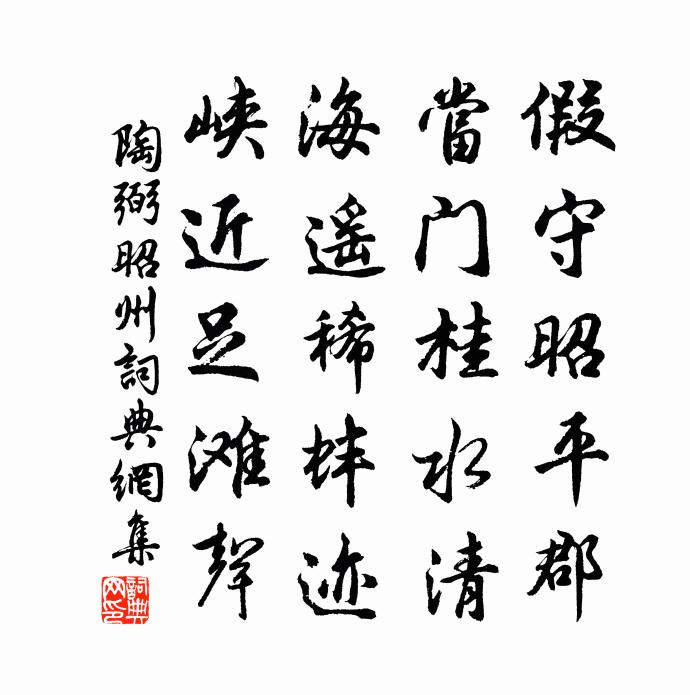 假守昭平郡
當门桂水清
海遥稀蚌迹
峡近足滩聲
陶弼昭州詞典網集
詞典網印